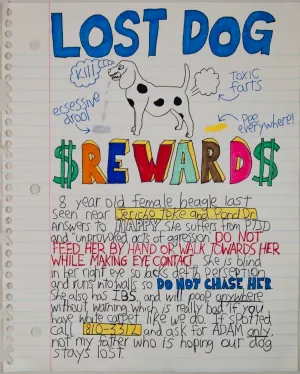 LOST DOG
Kill!
toxic
farts
exsessive
drool
Pee
everywhere!
$REWARD$
8 year old female beagle last
seen near Jericho Toke and Pond Dr.
Answers to HAPPY She suffers from PTSD
and "unprovoked acts of agression" DO NOT
FEED HER BY HAND OR WALK TOWARDS HER
WHILE MAKING EYE CONTACT. She is blind
in her right eye so lacks depth perception
and runs into walls so DO NOT CHASE HER
She also has IBS, and will poop anywhere
without warning which is really bad if you
have white carpet like we do. If spotted
call 810-3312 and ask for ADAM only,
not my father who is hoping our dog
stays lost.